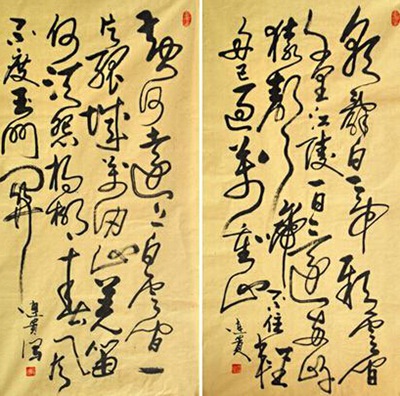 朝辭白帝彩雲間
千里江陵一日還兩岸
猿聲啼不住輕
舟已過萬重山
黃河遠上白雲間一
片孤城萬仞山羌笛
何須怨楊柳春風
不度玉門關